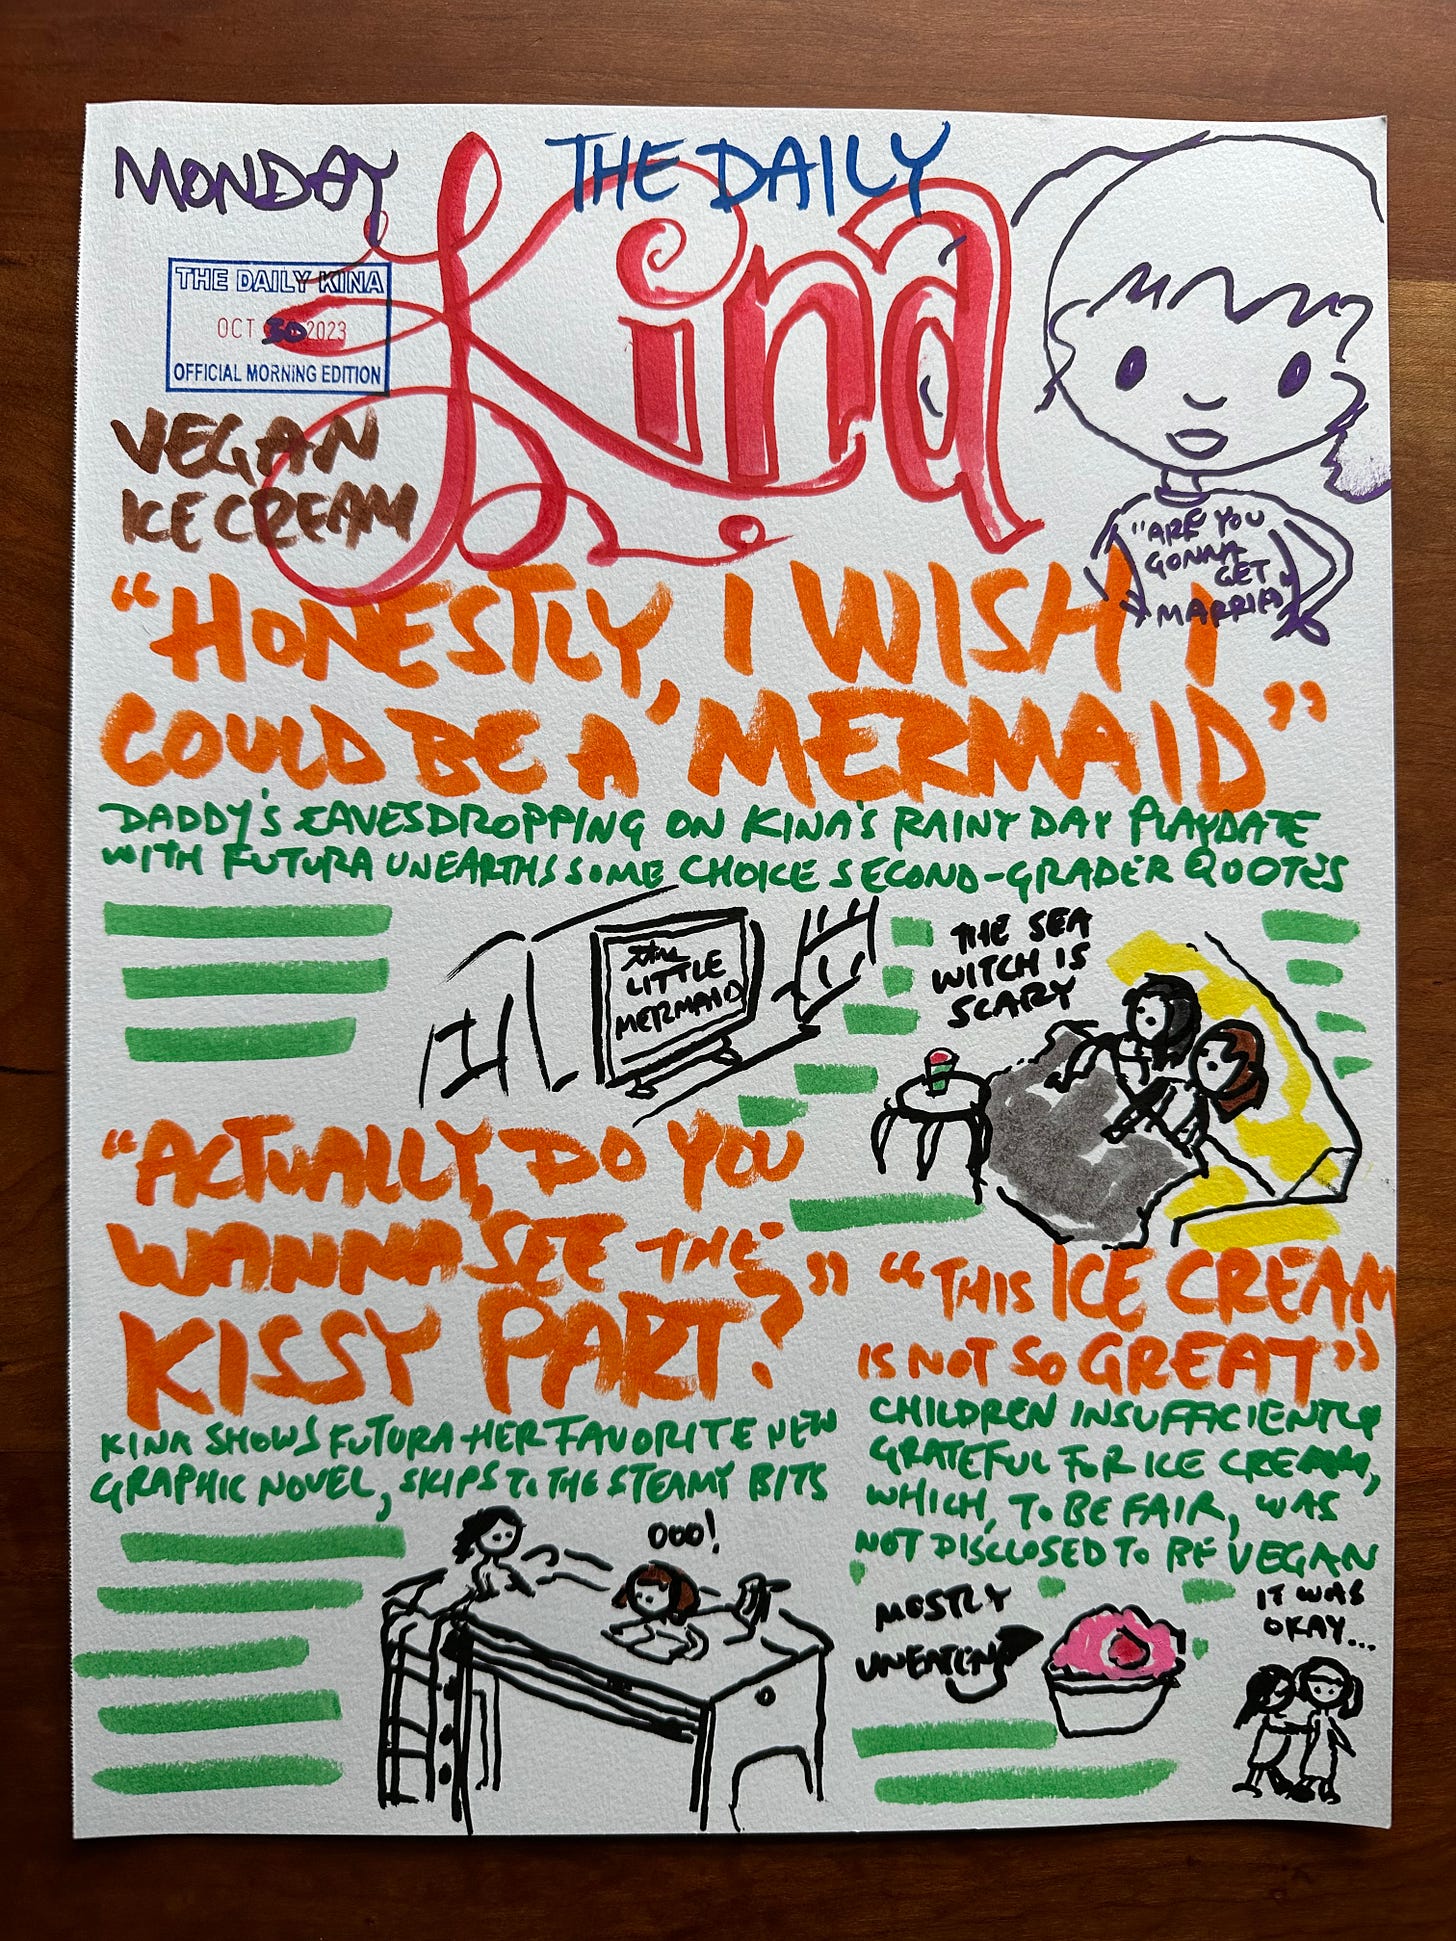 MONDAY
THE DAILY
Kina
THE DAILY KINA
OCT 30 2023
OFFICIAL MORNING EDITION
VEGAN
ICE CREAM
"ARE YOU
GONNA
GET
MARRIED
"HONESTLY, I WISH I
COULD BE A 'MERMAID"
DADDY'S EAVESDROPPING ON KINA'S RAINY DAY PLAYDATE
WITH FUTURA UNEARTHS SOME CHOICE SECOND-GRADER QUOTES
THE
LITTLE
MERMAID
THE SEA
WITCH IS
SCARY
"ACTUALLY, DO YOU
WANNA SEE THE
KISSY PART?"
KINA SHOWS FUTURA HER FAVORITE NEW
GRAPHIC NOVEL, SKIPS TO THE STEAMY BITS
OOO!
"THIS ICE CREAM
IS NOT SO GREAT"
CHILDREN INSUFFICIENTLY
GRATEFUL FOR ICE CREAM,
WHICH, TO BE FAIR, WAS
NOT DISCLOSED TO BE VEGAN
MOSTLY
UNEATEN
IT WAS
OKAY...